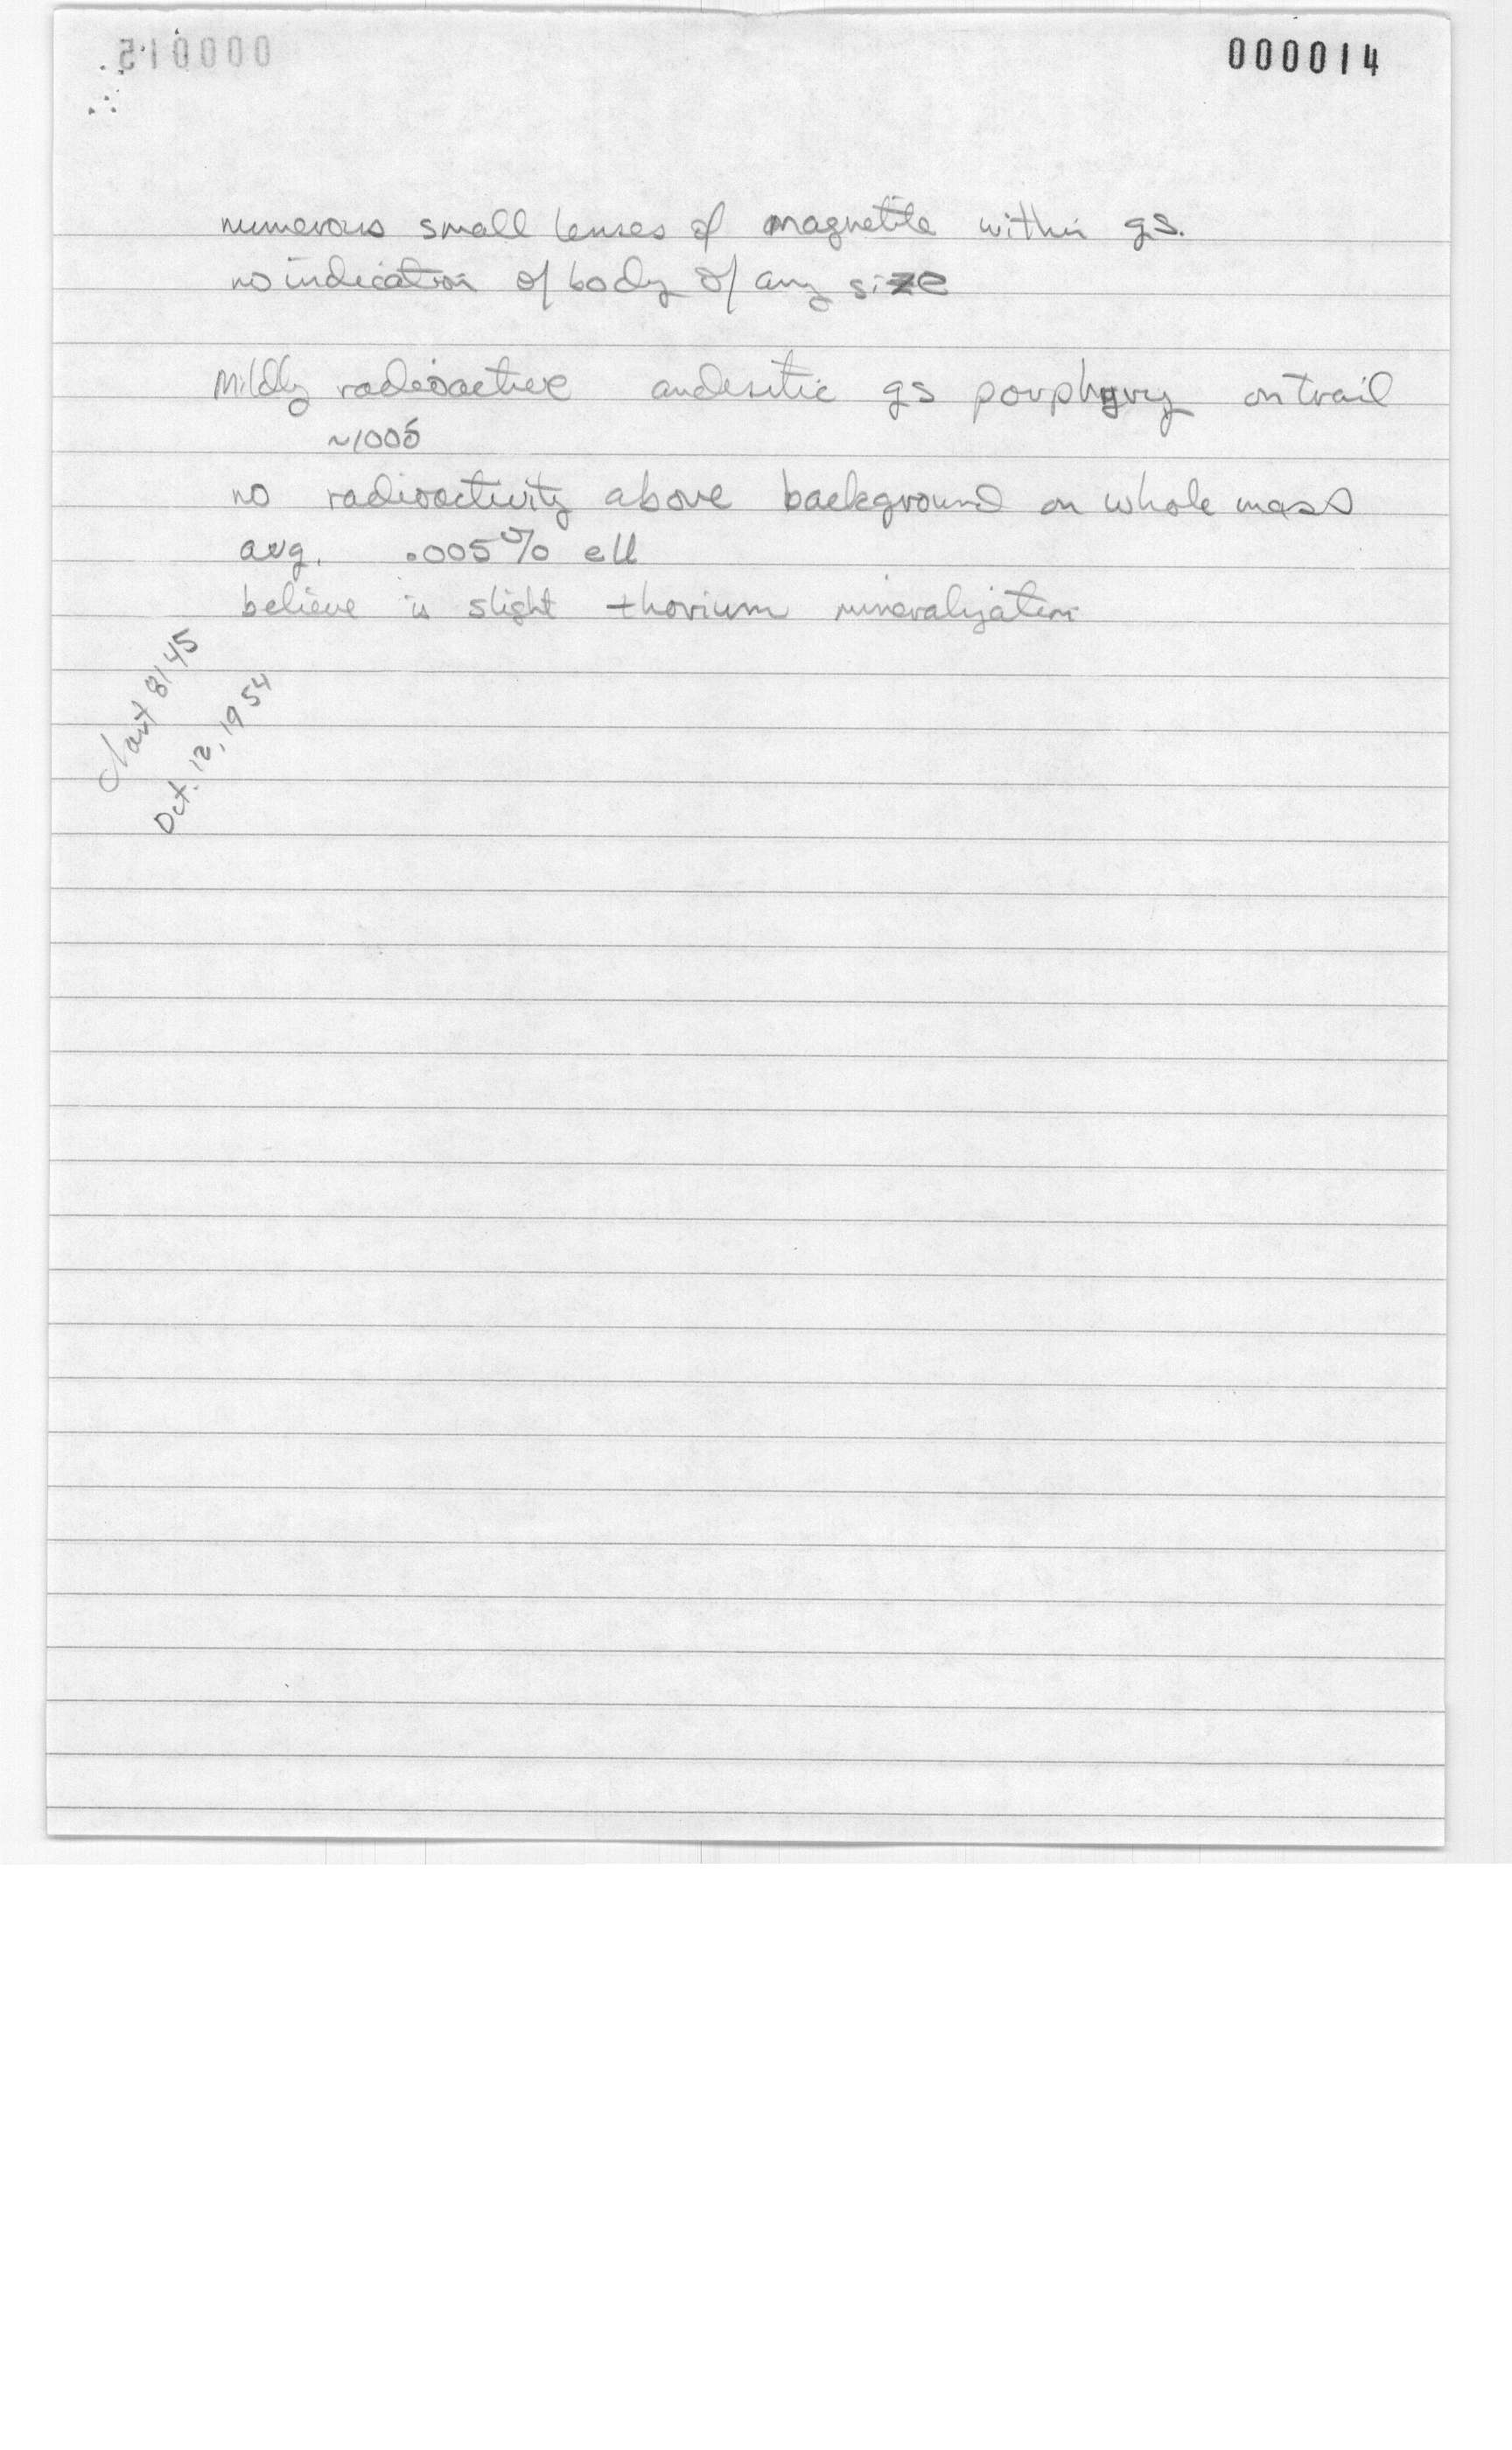 000014
numerous small lenses of magnetite within gs.
no indication of body of any size
Mildly radioactive andesitic gs porphyry on trail
no radioactivity above background on whole mass
avg. .005% eU
believe is slight thorium mineralization
8145
Oct. 12, 1954